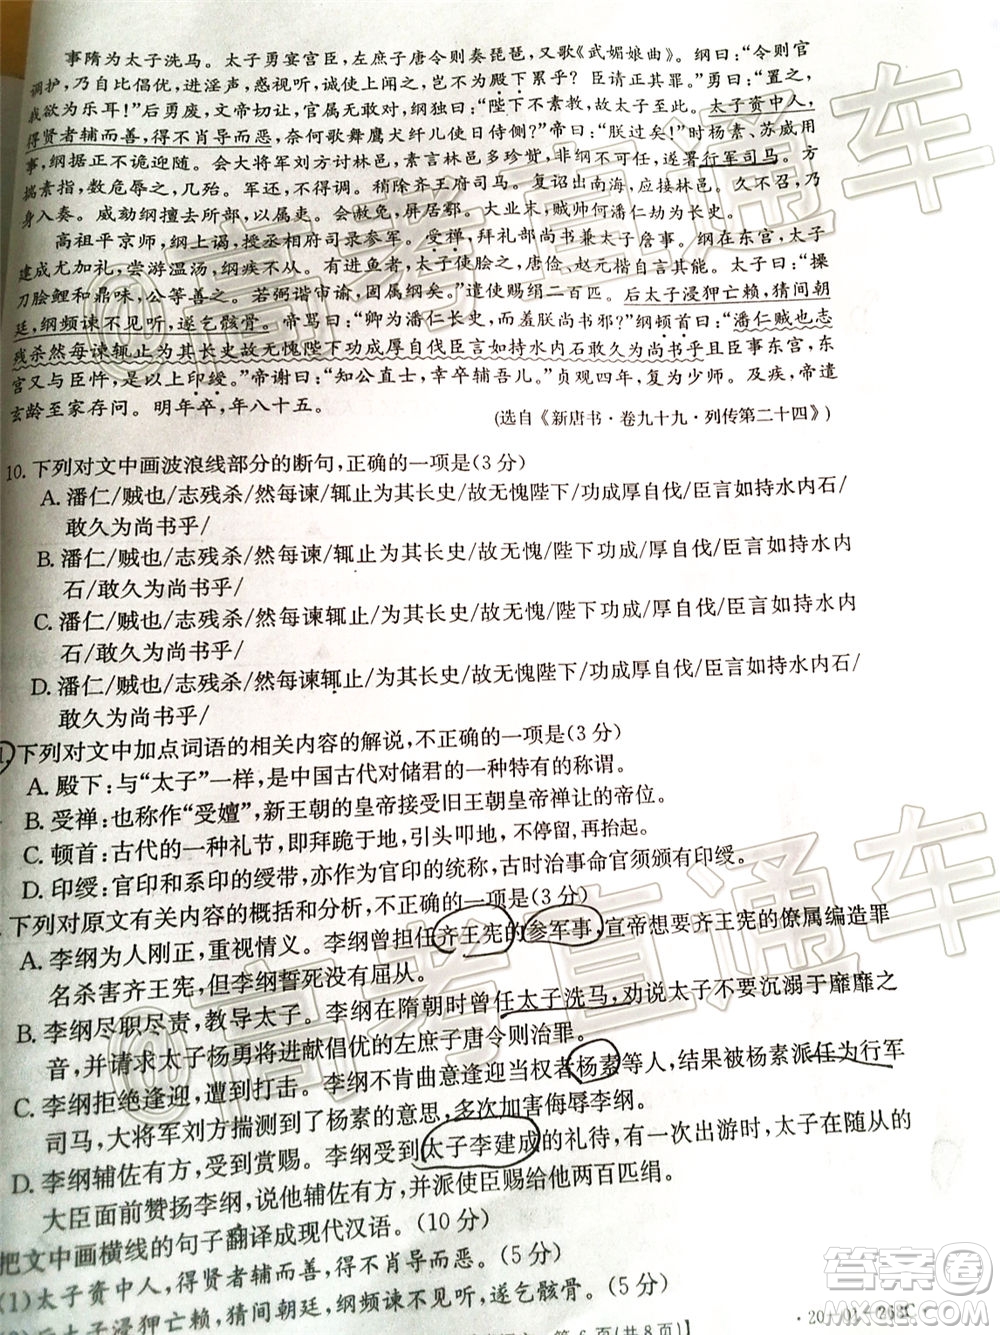 事隋为太子洗马。太子勇宴宫臣，左庶子唐令则奏琵琶，又歌《武媚娘曲》。纲曰：“令则官
调护，乃自比倡优，进淫声，惑视听，诚使上闻之，岂不为殿下累乎？臣请正其罪。”勇曰：“置之，
我欲为乐耳！”后勇废，文帝切让，官属无敢对，纲独曰：“陛下不素教，故太子至此。太子资中人，
得贤者辅而善，得不肖导而恶，奈何歌舞鹰犬纤儿使日侍侧？”帝曰：“朕过矣！”时杨素、苏威用
事，纲据正不诡迎随。会大将军刘方讨林邑，素言林邑多珍赀，非纲不可任，遂署行军司马。方
揣素指，数危辱之，几殆。军还，不得调。稍除齐王府司马。复诏出南海，应接林邑。久不召，乃
身入奏。威劾纲擅去所部，以属吏。会赦免，屏居鄠。大业末，贼帅何潘仁劫为长史。
高祖平京师，纲上谒，授丞相府司录参军。受禅，拜礼部尚书兼太子詹事。纲在东宫，太子
建成尤加礼，尝游温汤，纲疾不从。有进鱼者，太子使脍之，唐俭、赵元楷自言其能。太子曰：“操
刀脍鲤和鼎味，公等善之。若弼谐审谕，固属纲矣。”遣使赐绢二百匹。后太子浸狎亡赖，猜间朝
廷，纲频谏不见听，遂乞骸骨。帝骂曰：“卿为潘仁长史，而羞朕尚书邪？”纲顿首曰：“潘仁贼也志
残杀然每谏辄止为其长史故无愧陛下功成厚自伐臣言如持水内石敢久为尚书乎且臣事东宫，东
宫又与臣忤，是以上印绶。”帝谢曰：“知公直士，幸卒辅吾儿。”贞观四年，复为少师。及疾，帝遣
玄龄至家存问。明年卒，年八十五。
(选自《新唐书·卷九十九·列传第二十四》)
10. 下列对文中画波浪线部分的断句，正确的一项是(3 分)
A. 潘仁/贼也/志残杀/然每谏/辄止/为其长史/故无愧陛下/功成厚自伐/臣言如持水内石/
敢久为尚书乎/
B. 潘仁/贼也/志残杀/然每谏/辄止/为其长史/故无愧/陛下功成/厚自伐/臣言如持水内
石/敢久为尚书乎/
C. 潘仁/贼也/志残杀/然每谏辄止/为其长史/故无愧/陛下功成/厚自伐/臣言如持水内
石/敢久为尚书乎/
D. 潘仁/贼也/志残杀/然每谏辄止/为其长史/故无愧陛下/功成厚自伐/臣言如持水内石/
敢久为尚书乎/
下列对文中加点词语的相关内容的解说，不正确的一项是(3 分)
A. 殿下：与“太子”一样，是中国古代对储君的一种特有的称谓。
B. 受禅：也称作“受嬗”，新王朝的皇帝接受旧王朝皇帝禅让的帝位。
C. 顿首：古代的一种礼节，即拜跪于地，引头叩地，不停留，再抬起。
D. 印绶：官印和系印的绶带，亦作为印信的统称，古时治事命官须颁有印绶。
下列对原文有关内容的概括和分析，不正确的一项是(3 分)
A. 李纲为人刚正，重视情义。李纲曾担任齐王宪的参军事，宣帝想要齐王宪的僚属编造罪
名杀害齐王宪，但李纲誓死没有屈从。
B. 李纲尽职尽责，教导太子。李纲在隋朝时曾任太子洗马，劝说太子不要沉溺于靡靡之
音，并请求太子杨勇将进献倡优的左庶子唐令则治罪。
C. 李纲拒绝逢迎，遭到打击。李纲不肯曲意逢迎当权者杨素等人，结果被杨素派任为行军
司马，大将军刘方揣测到了杨素的意思，多次加害侮辱李纲。
D. 李纲辅佐有方，受到赏赐。李纲受到太子李建成的礼待，有一次出游时，太子在
大臣面前赞扬李纲，说他辅佐有方，并派使臣赐给他两百匹绢。
把文中画横线的句子翻译成现代汉语。(10 分)
(1)太子资中人，得贤者辅而善，得不肖导而恶。(5 分)
后太子浸狎亡赖，猜间朝廷，纲频谏不见听，遂乞骸骨。(5 分)
第 6 页(共 8 页)】
@高考直通车
@高考直通车
答案卷